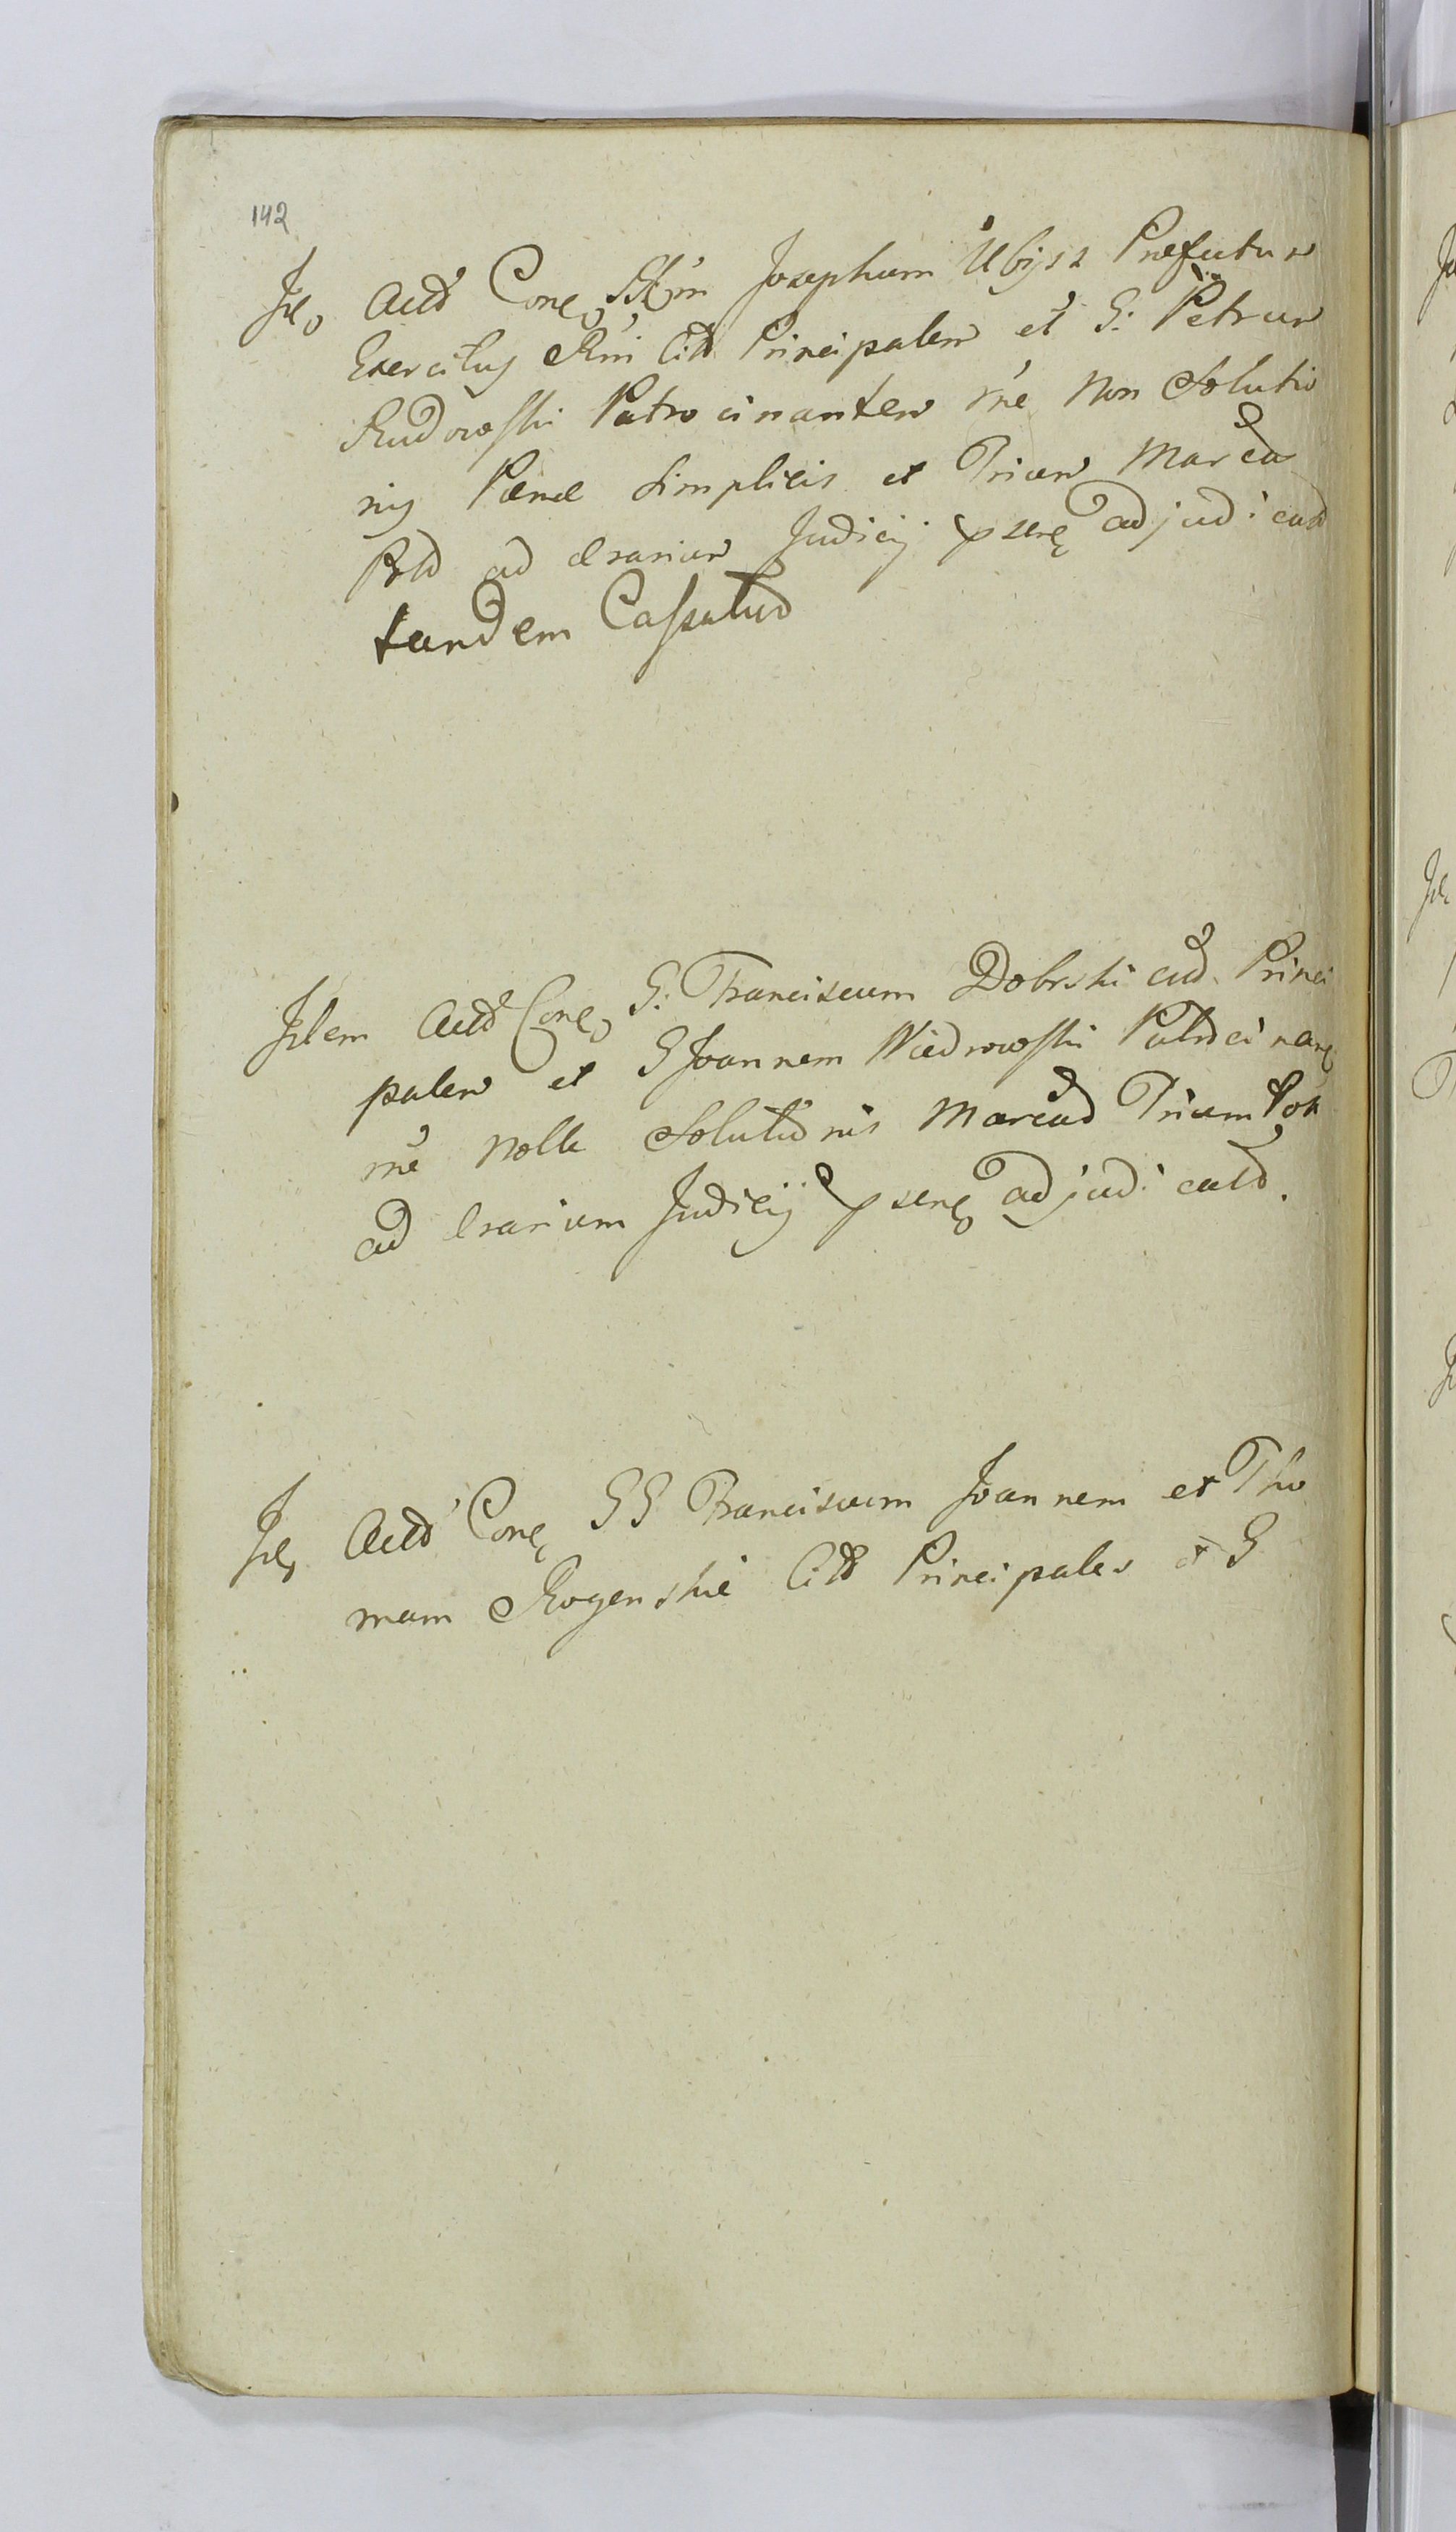 142
It, Actõ Conc, Mm Josephum Ubysz Præfectum
Exercitus Rni Citõ Principalem et G: Petrum
Rudowski Patrocinantem rñe Non Solutio
nis Pænæ Simplicis et Trium Marca
Pol ad ærarium Judicij psenę adjudicatõ
tandem Cassatud
Item Actõ Conc, G: Franciscum Dobrski ad Princi
palem et G Joannem Niedrowski Patrocinanę
rñe Solutionis Marcad Trium Pol
ad Erarium Judicij psenę adjudicatõ.
It, Actõ Conc, GG Franciscum Joannem et Tho
mam Rogenskie Citõ Principales et G